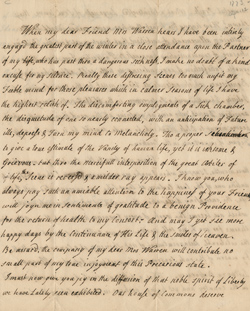 When my dear Friend Mrs Warren hears I have been intirely
engaged the greatest part of the winter in a close attendance upon the Partner
of my life, who has past thro a dangerous sickness, I make no doubt of a hand
excuse for my silence. Really these distressing scenes too much unfit my
feeble mind for those pleasures which in calmer seasons of life I have
the highest relish of. The discomforting confinement of a sick chamber,
the disquietude of one so nearly connected, with an anticipation of Future
ills, depress & turn my mind to Melancholy. Tho a proper
to give a less Estimate of the Vanity of human life, yet is it irksome &
Grievous. but thro the mercifull interposition of the great Arbiter of
Life, scene is reversd & a milder ray appears. I know you, who
always pay such an amiable attention to the happiness of your Friend
will joyn mine sentiments of gratitude to a benign Providence
for the return of health to my Consort. And may I yet see more
happy days by the Continuance of His Life & the smiles of heaven.
Be assured, the company of my dear Mrs Warren will contribute no
small part of my true enjoyment of this Precarious state.
I must now give you joy in the diffusion of that noble spirit of Liberty
we have Lately seen exhibited. Our House of Commons deserve